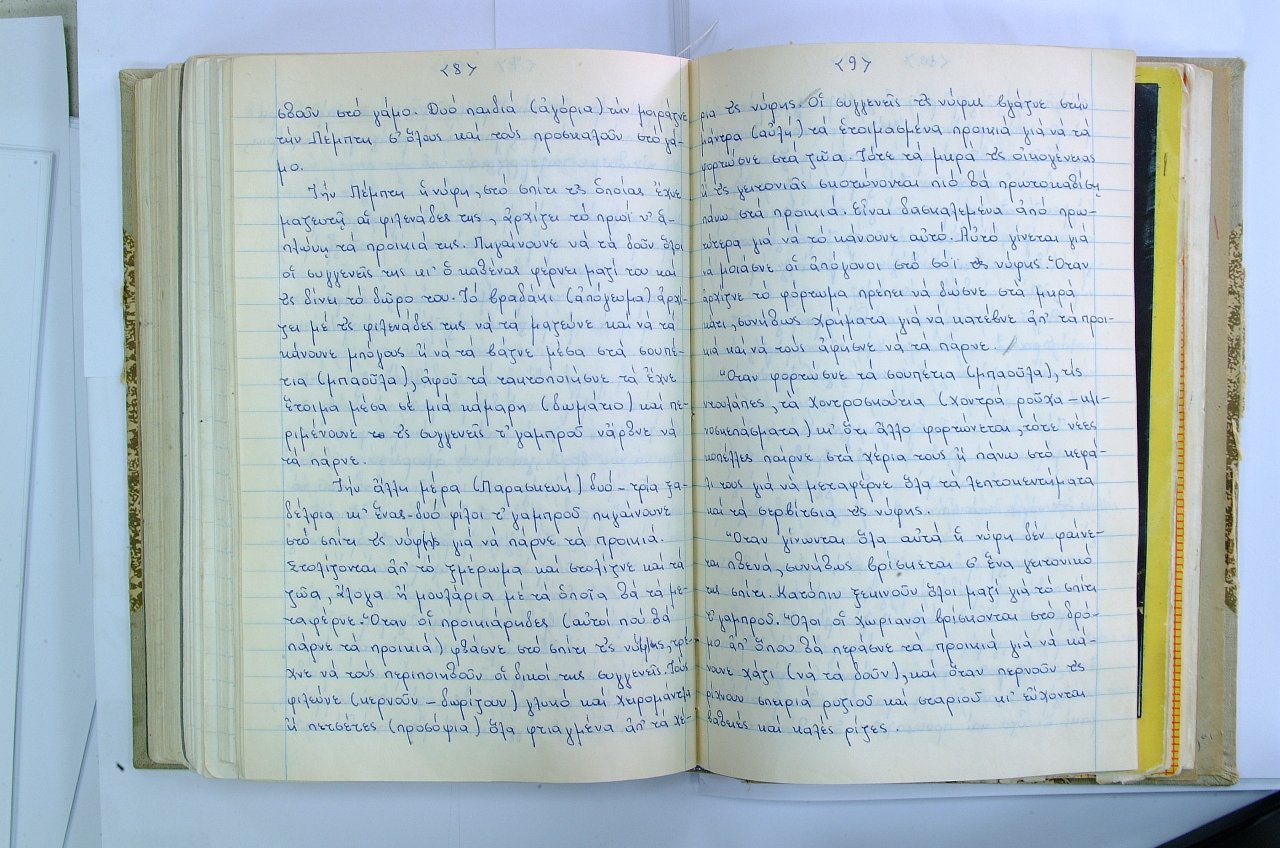 <8>
σθοῦν στό γάμο. Δυό παιδιά (ἀγόρια) τήν μοιράζνε
τήν Πέμπτη σ' ὅλους καί τούς προσκαλοῦν στό γά-
μο.
Τήν Πέμπτη ἡ νύφη, στό σπίτι τῆς ὁποίας ἔχνε
μαζευτῇ οἱ φιλενάδες της, ἀρχίζει τό πρωί ν' ἁ-
πλώνῃ τά προικιά της. Πηγαίνουνε νά τά δοῦν ὅλοι
οἱ συγγενεῖς της κι' ὁ καθένας φέρνει μαζί του καί
τῆς δίνει τό δῶρο του. Τό βραδάκι (ἀπόγευμα) ἀρχί-
ζει μέ τίς φιλενάδες της νά τά μαζεύνε καί νά τά
κάνουνε μπόγους ἤ νά τά βάζνε μέσα στά σουπέ-
τια (μπαοῦλα), ἀφοῦ τά τακτοποιήσνε τά ἔχνε
ἕτοιμα μέσα σέ μιά κάμαρη (δωμάτιο) καί πε-
ριμένουνε τς συγγενεῖς τ' γαμπροῦ νἄρθνε νά
τά πάρνε.
Τήν ἄλλη μέρα (Παρασκευή) δυό-τρία ξα-
δέλφια κι' ἕνας-δυό φίλοι τ' γαμπροῦ πηγαίνουνε
στό σπίτι τῆς νύφης γιά νά πάρνε τά προικιά.
Στολίζονται ἀπ' τό ξημέρωμα καί στολίζνε καί τά
ζῶα, ἄλογα ἤ μουλάρια μέ τά ὁποῖα θά τά με-
ταφέρνε. Ὅταν οἱ προικιάρηδες (αὐτοί πού θά
πάρνε τά προικιά) φθάσνε στό σπίτι τῆς νύφης, τρέ-
χνε νά τούς περιποιηθοῦν οἱ δικοί της συγγενεῖς. Τούς
φιλεύνε (κερνοῦν - δωρίζουν) γλυκό καί χειρομάντηλα
ἤ πετσέτες (προσόψια) ὅλα φτιαγμένα ἀπ' τά χέ-
<9>
ρια τῆς νύφης. Οἱ συγγενεῖς τῆς νύφης βγάζνε στήν
μάντρα (αὐλή) τά ἑτοιμασμένα προικιά γιά νά τά
φορτώσνε στά ζῶα. Τότε τά μικρά τῆς οἰκογένειας
ἤ τῆς γειτονιᾶς σκοτώνονται πιό θά πρωτοκαθίσῃ
πάνω στά προικιά. Εἶναι δασκαλεμένα ἀπό πρω-
τύτερα γιά νά τό κάνουνε αὐτό. Αὐτό γίνεται γιά
νά μοιάσνε οἱ ἀπόγονοι στό σόϊ τῆς νύφης. Ὅταν
ἀρχίζνε τό φόρτωμα πρέπει νά δώσνε στά μικρά
κάτι, συνήθως χρήματα γιά νά κατέβνε ἀπ' τά προι-
κιά καί νά τούς ἀφήσνε νά τά πάρνε.
Ὅταν φορτώσνε τά σουπέτια (μπαοῦλα), τίς
ντουλάπες, τά χοντροσκούτια (χοντρά ροῦχα - κλι-
νοσκεπάσματα) κι' ὅτι ἄλλο φορτώνεται, τότε νέες
κοπέλλες παίρνε στά χέρια τους ἤ πάνω στό κεφά-
λι τους γιά νά μεταφέρνε ὅλα τά λεπτοκεντήματα
καί τά σερβίτσια τῆς νύφης.
Ὅταν γίνωνται ὅλα αὐτά ἡ νύφη δέν φαίνε-
ται πθενά, συνήθως βρίσκεται σ' ἕνα γειτονικό
της σπίτι. Κατόπιν ξεκινοῦν ὅλοι μαζί γιά τό σπίτι
τ' γαμπροῦ. Ὅλοι οἱ χωριανοί βρίσκονται στό δρό-
μο ἀπ' ὅπου θά περάσνε τά προικιά γιά νά κά-
νουνε χάζι (νά τά δοῦν), καί ὅταν περνοῦν τς
ρίχνουν σπυριά ρυζιοῦ καί σταριοῦ κι' εὔχονται
βαθειές καί καλές ρίζες.